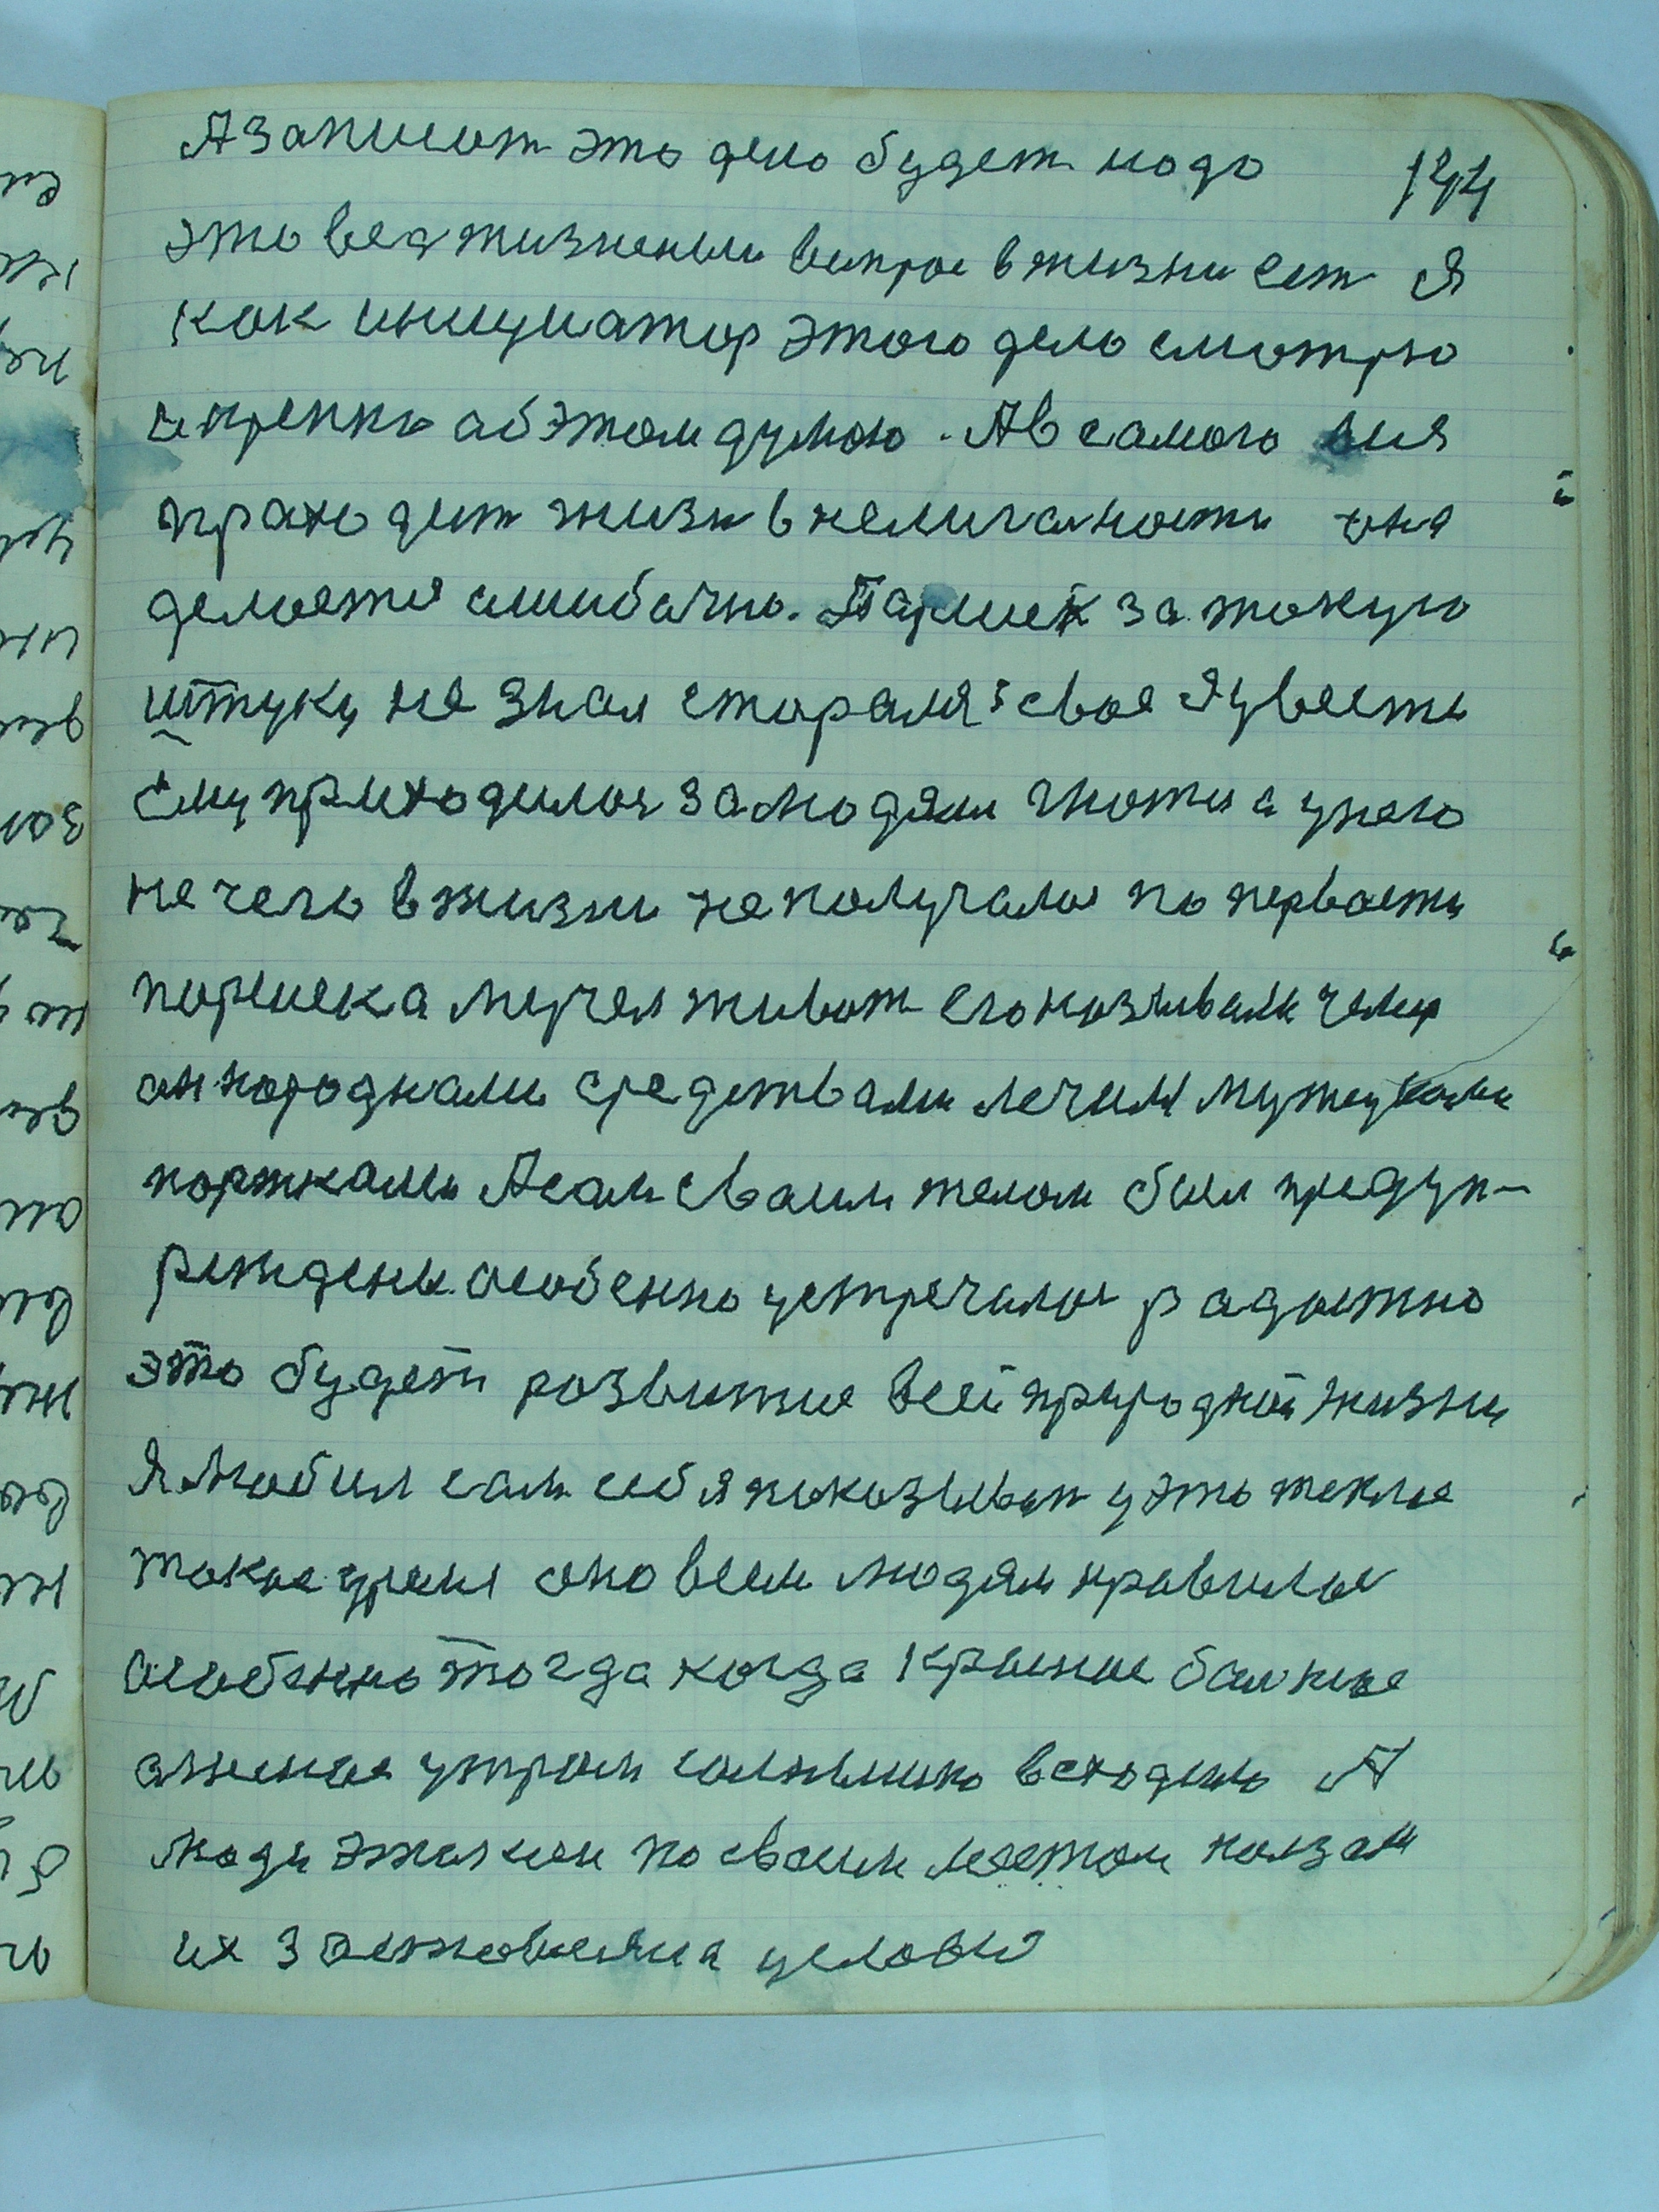 А записат это дело будет надо 144
это вся жизненый вопрос в жизни ест Я
как инициатор этого дело смотрю
и крепко об этом думаю. А в самого вся
праходит жизн в
делоется ошибачно. Паршек за такую
штуку не знал старался свое Я увести
Ему приходилос за людями гнатся а унего
нечего в жизни не получалос по первости
поршека мучел живот его называли чемер
он народнами средствами лечился
поржками А сам сваим телом был предуп-
режден особенно устречалос радостно
это будет развитие всей природной жизни
Я любил сам себя показыват у это теплое
такое время оно всем людям нравилос
особенно тогда когда красное болжое
утром солнышко всходило А
люди по сваим местом ползали
их